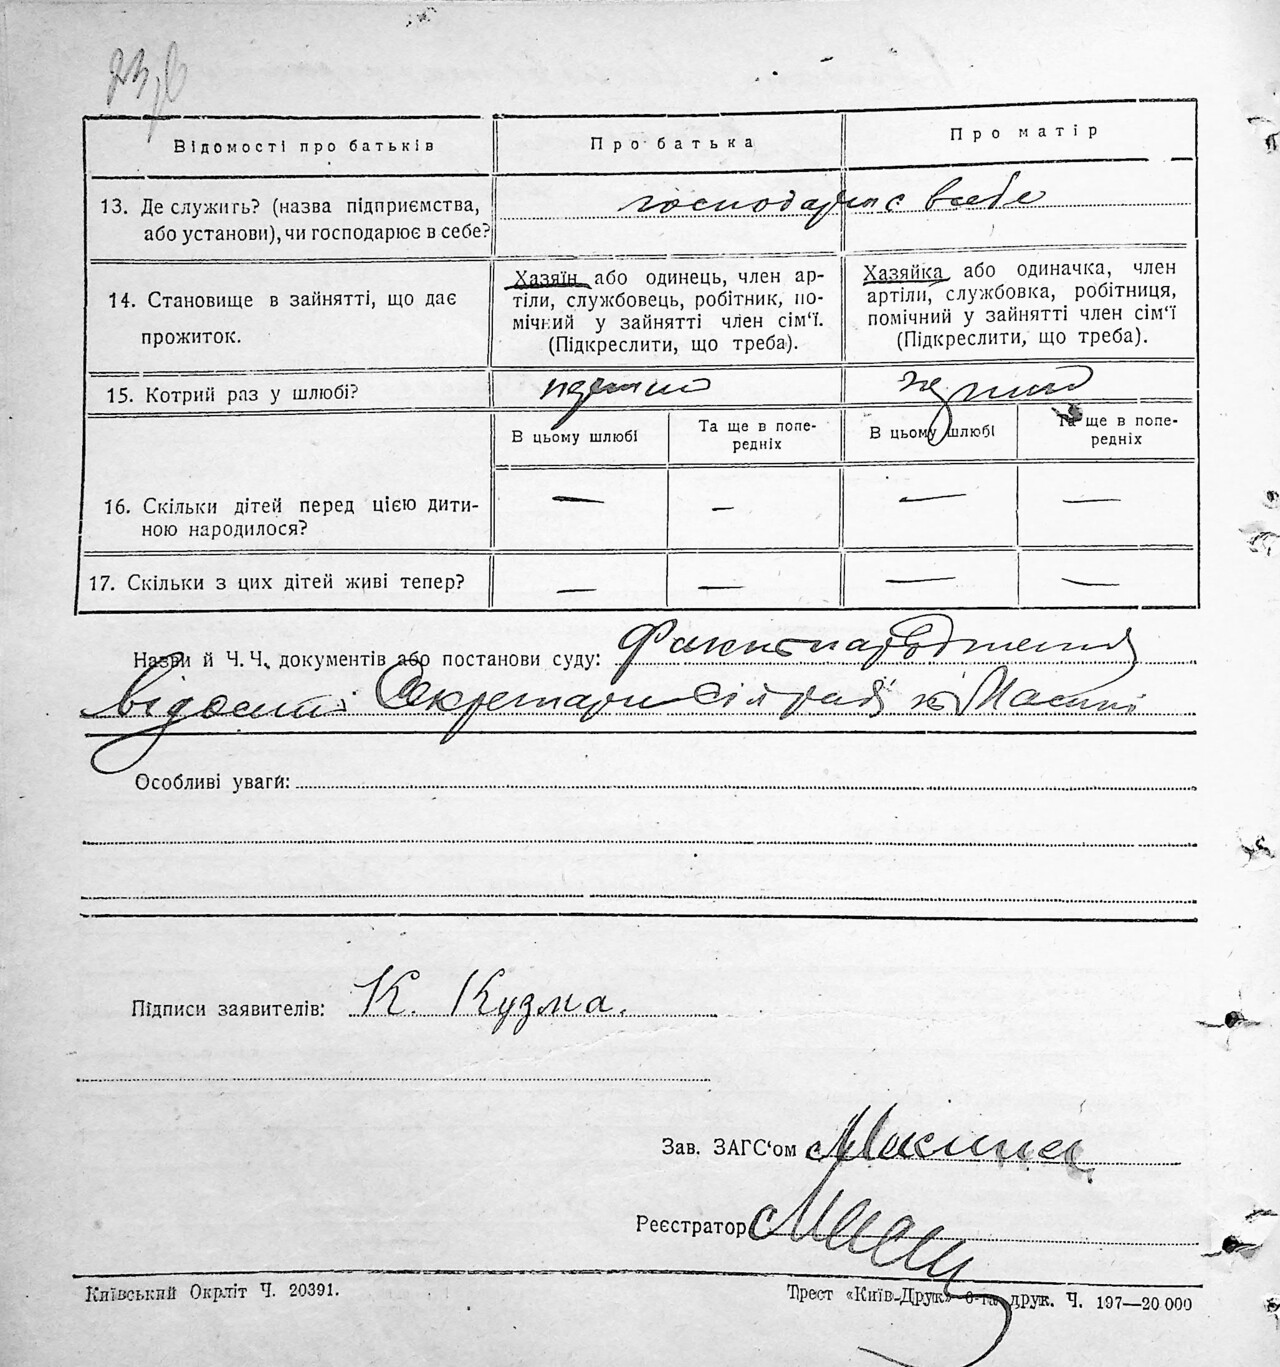 Відомості про батьків Про батька Про матір
13. Де служить? (назва підприємства,
або установи), чи господарює в себе?
господарює в себе
14. Становище в зайнятті, що дає
прожиток.
Хазяїн або одинець, член ар-
тіли, службовець, робітник, по-
мічний у зайнятті член сім‘ї.
(Підкреслити, що треба).
Хазяйка або одиначка, член
артіли, службовка, робітниця,
помічний у зайнятті член сім‘ї
(Підкреслити, що треба).
15. Котрий раз у шлюбі?
В цьому шлюбі
Та ще в попе-
редніх
В цьому шлюбі
Та ще в попе-
редніх
16. Скільки дітей перед цією дити-
ною народилося?
— — — —
17. Скільки з цих дітей живі тепер?
— — — —
Назви й Ч. Ч. документів або постанови суду: Факт народження
Секретарю сіл ради
Особливі уваги:
Підписи заявителів: К. Кузма.
Зав. ЗАГС‘ом
Реєстратор
Київський Окрліт Ч. 20391. Трест «Київ-Друк» 6-та друк. Ч. 197—20 000